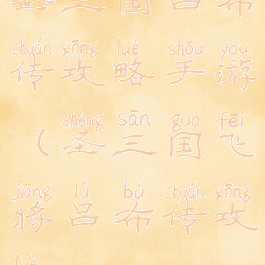 圣三国吕布
chuán gōng lüè shǒu yóu
传攻略手游
shèng sān guó fēi
（圣三国飞
jiāng lǚ bù chuán gōng
将吕布传攻